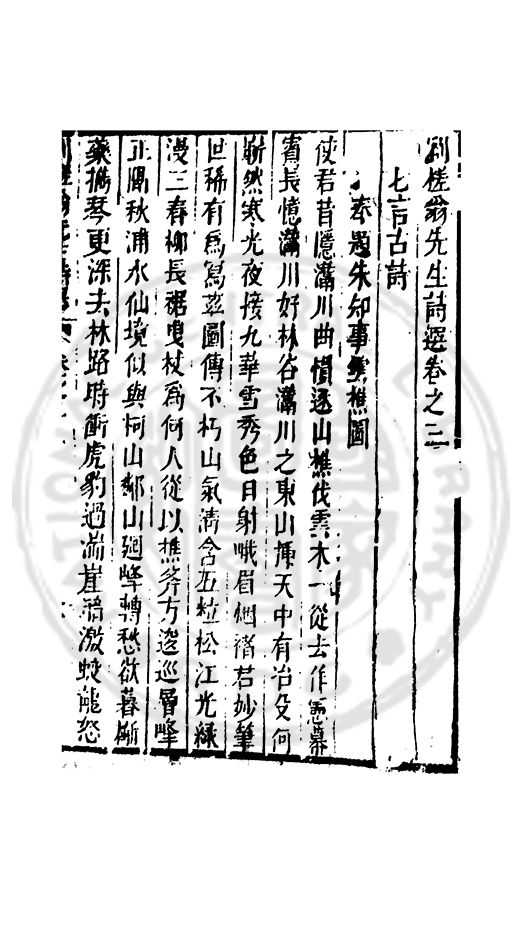 劉槎翁先生詩選卷之三
七言古詩
奉題朱知事雲樵圖
使君昔隱瀟川曲慣逐山樵伐雲木一從去作憲幕
賓長憶瀟川好林谷瀟川之東山揷天中有冶父何
嶄然寒光夜接九華雪秀色日射峨眉烟禇君妙筆
世稀有為寫茲圖傳不朽山氣清含五粒松江光綠
漫三春柳長裾曳杖為何人從以樵斧方逡巡層峰
正隔秋浦水仙境似與柯山鄰山廻峰轉愁欲暮斸
藥擕琴更深去林路時衝虎豹過湍崖激蛟龍怒